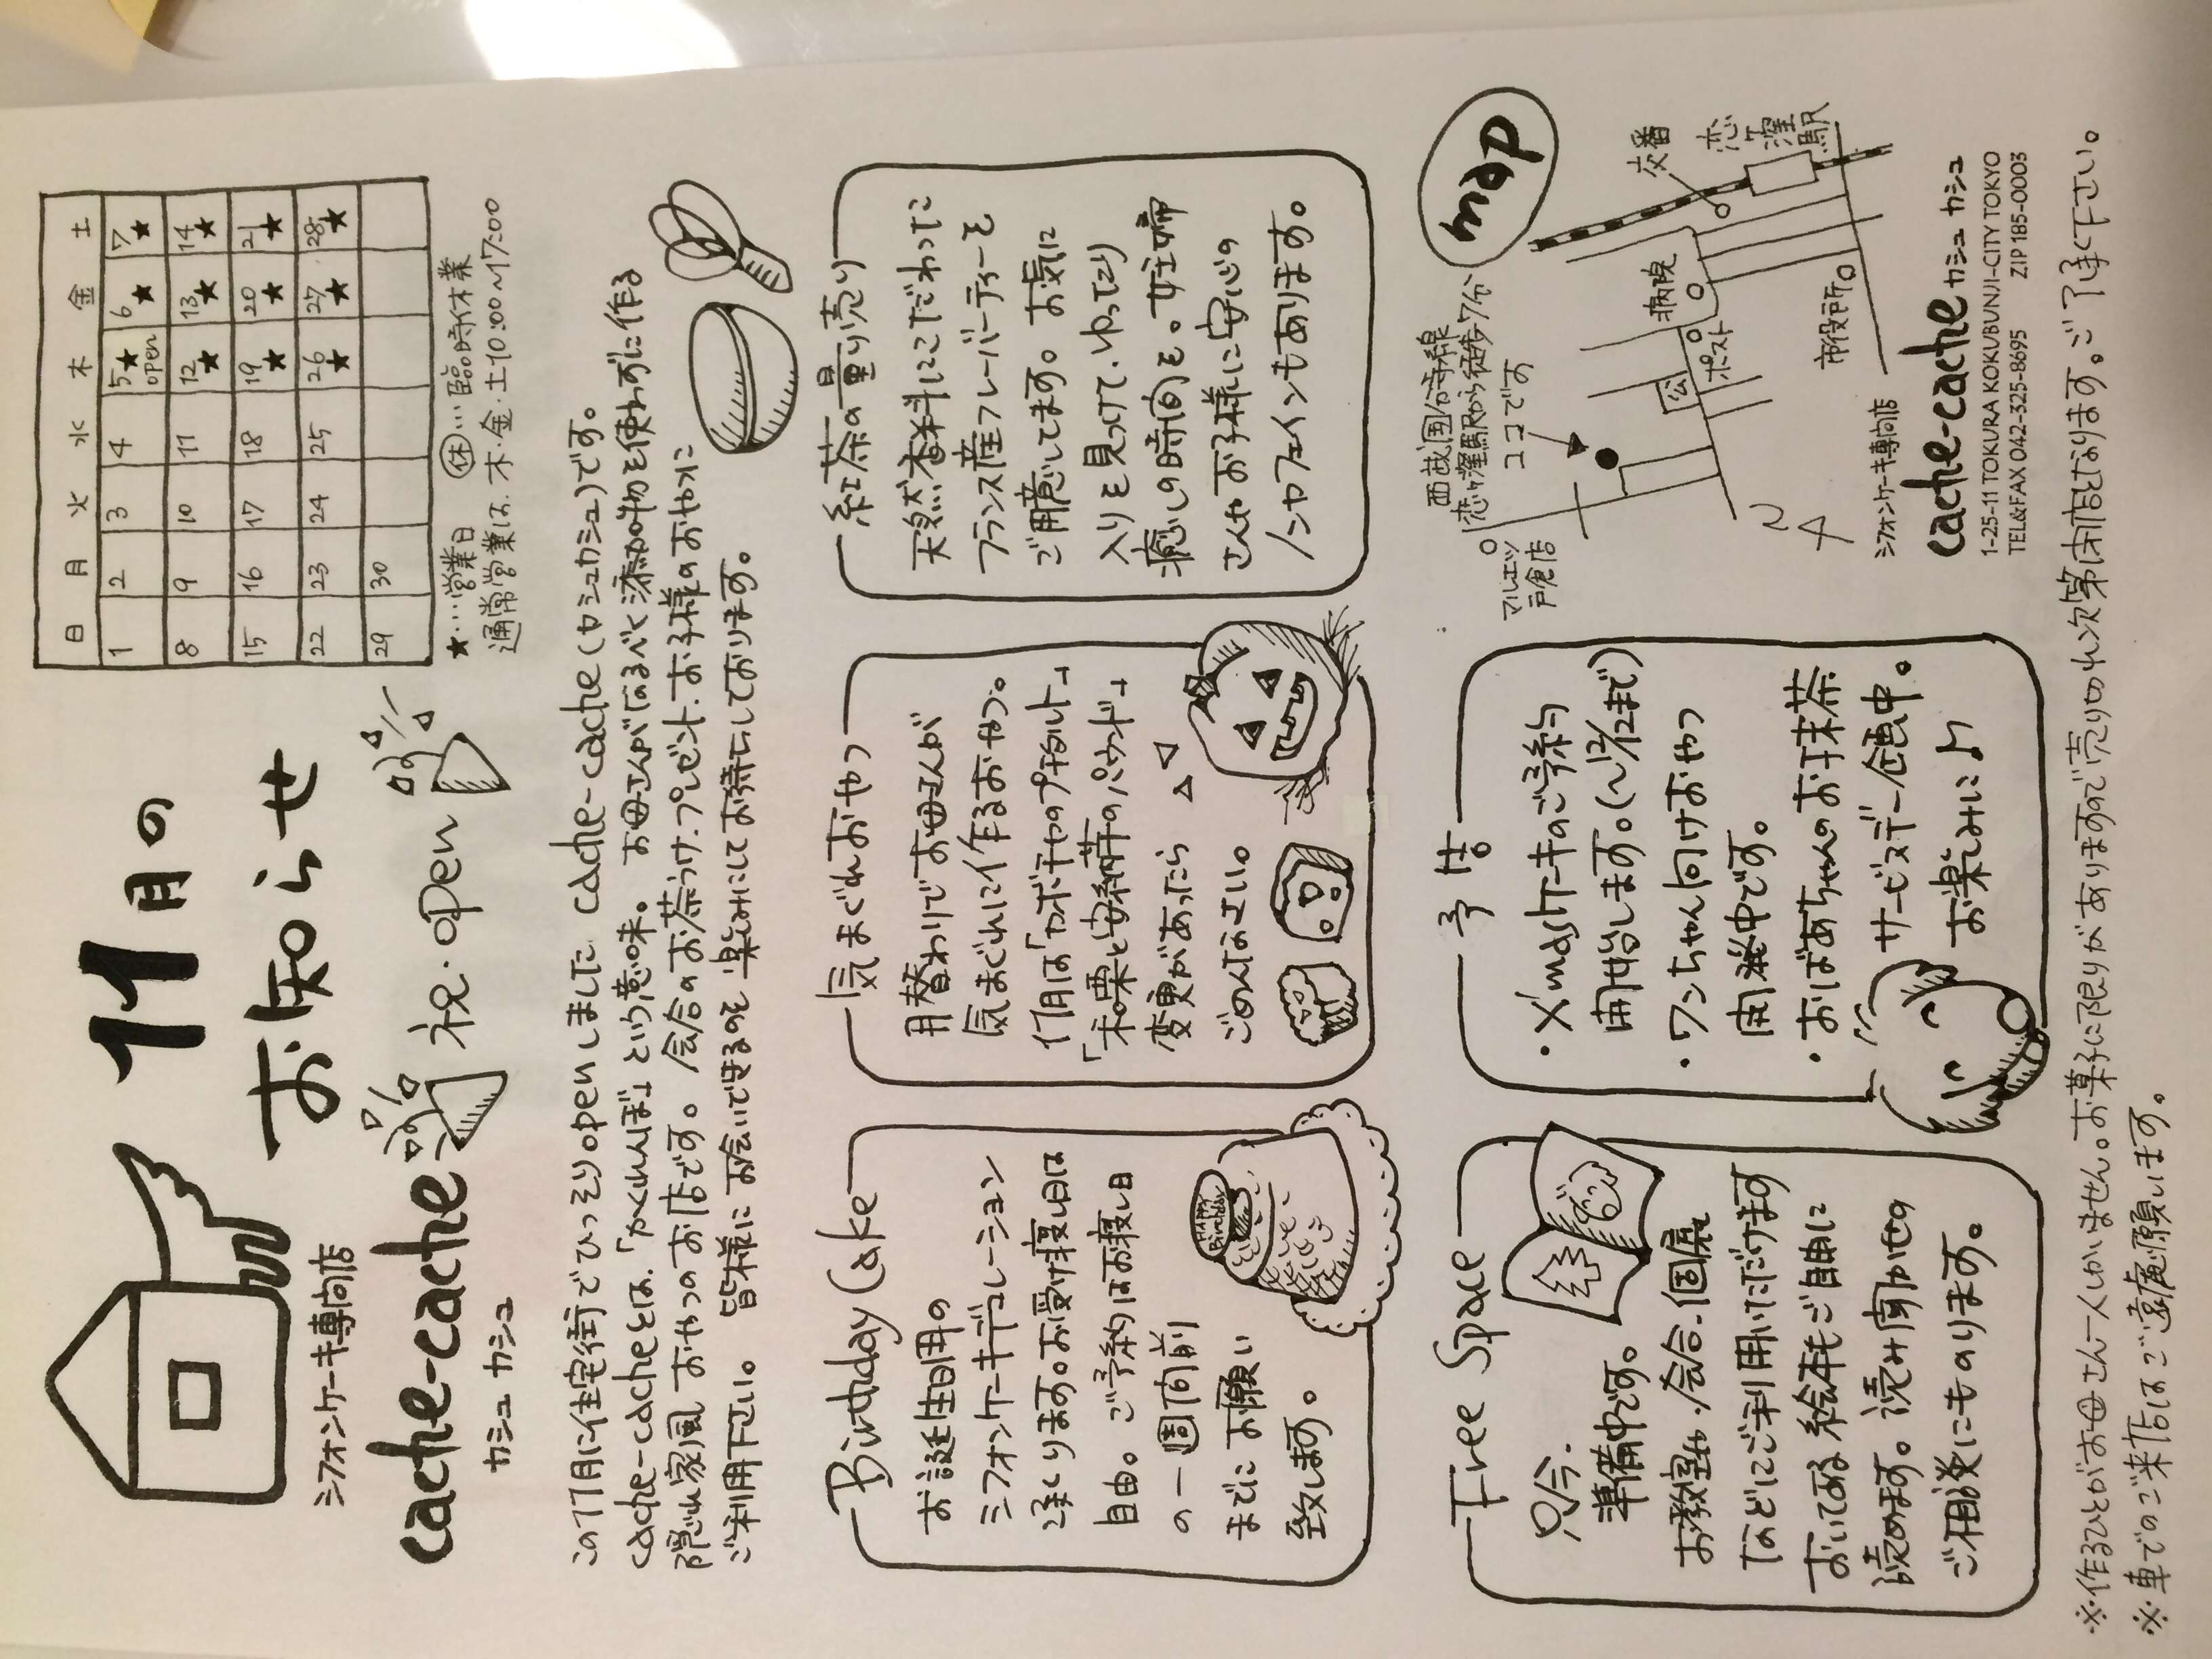 11月の
お知らせ
シフォンケーキ専門店
cache-cache
カシュカシュ
祝・open
日 月 火 水 木 金 土
1 2 3 4 5★ 6★ 7★
open
8 9 10 11 12★ 13★ 14★
15 16 17 18 19★ 20★ 21★
22 23 24 25 26★ 27★ 28★
29 30
★…営業日 ㊡…臨時休業
通常営業は、木・金・土10:00~17:00
この11月に住宅街でひっそりopenしました cache-cache(カシュカシュ)です。
cache-cacheとは、「かくれんぼ」という意味。お母さんがなるべく添加物を使わずに作る
隠れ家風おやつのお店です。会合のお茶うけ、プレゼント、お子様のおやつに
ご利用下さい。 皆様にお会いできるのを楽しみにしてお待ちしております。
Birthday Cake
お誕生日用の
シフォンケーキデコレーション
承ります。お受け渡し日は
自由。ご予約はお渡し日
の一週間前
までにお願い
致します。
HAPPY
Birthday
気まぐれおやつ
月替わりでお母さんが
気まぐれに作るおやつ。
11月は「カボチャのプチタルト」
「和栗と安納芋のパウンド」
変更があったら
ごめんなさい。
紅茶の量り売り
天然香料にこだわった
フランス産フレーバーティーを
ご用意してます。お気に
入りを見つけて、ゆったり
癒しの時間を。妊婦
さんやお子様に安心の
ノンカフェインもあります。
Free Space
只今、
準備中です。
お教室や、会合、個展
などにご利用いただけます
おいてある絵本もご自由に
読めます。読み聞かせの
ご相談にものります。
予告
・X'masケーキのご予約
開始します。(~12/12まで)
・ワンちゃん向けおやつ
開発中です。
・おばあちゃんのお抹茶
サービスデー企画中。
お楽しみに♪
map
西武国分寺線
恋ヶ窪駅から徒歩7分
ココです
マルエツ
戸倉店
公
ポスト
病院
交番
恋ヶ窪駅
市役所
N
シフォンケーキ専門店
cache-cache カシュカシュ
1-25-11 TOKURA KOKUBUNJI-CITY TOKYO
TEL&FAX 042-325-8695 ZIP 185-0003
※作るひとがお母さん一人しかいません。お菓子に限りがありますので売り切れ次第閉店となります。ご了承下さい。
※車でのご来店はご遠慮願います。